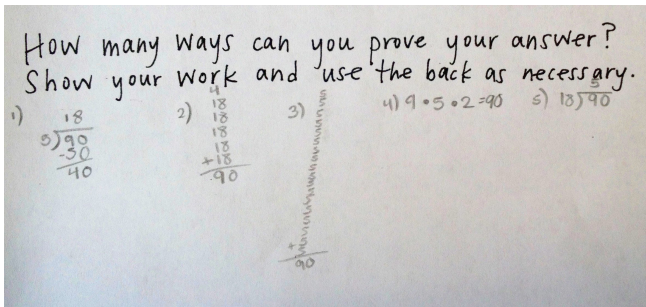 How many ways can you prove your answer?
Show your work and use the back as necessary.
1)
18
5)90
-50
40
2)
4
18
18
18
18
+18
90
3)
+
90
4) 9•5•2=90
5)
5
18)90